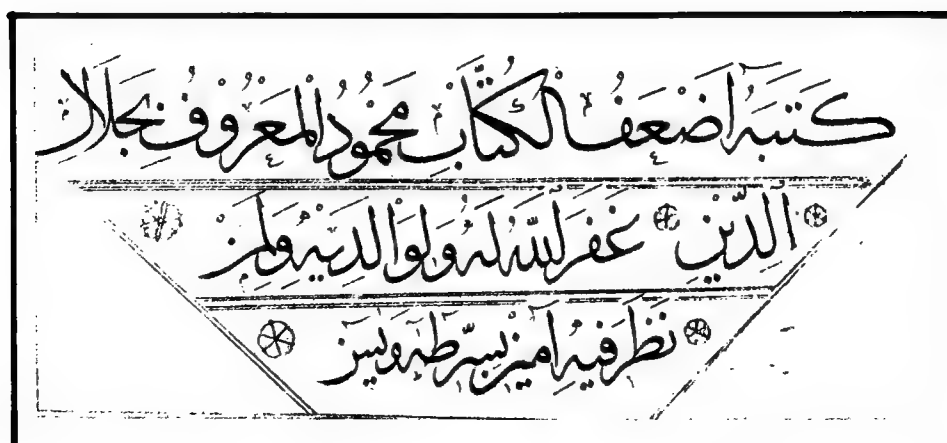 كَتَبَهُ أَضْعَفُ الْكُتَّابِ مَحْمُودُ الْمَعْرُوفُ بِجَلَالِ
الدِّيْنِ غَفَرَ اللّٰهُ لَهُ وَلِوَالِدَيْهِ وَلِمَنْ
نَظَرَ فِيْهِ آمِيْنْ بِسِرِّ طٰهٰ وَيٰسٓ